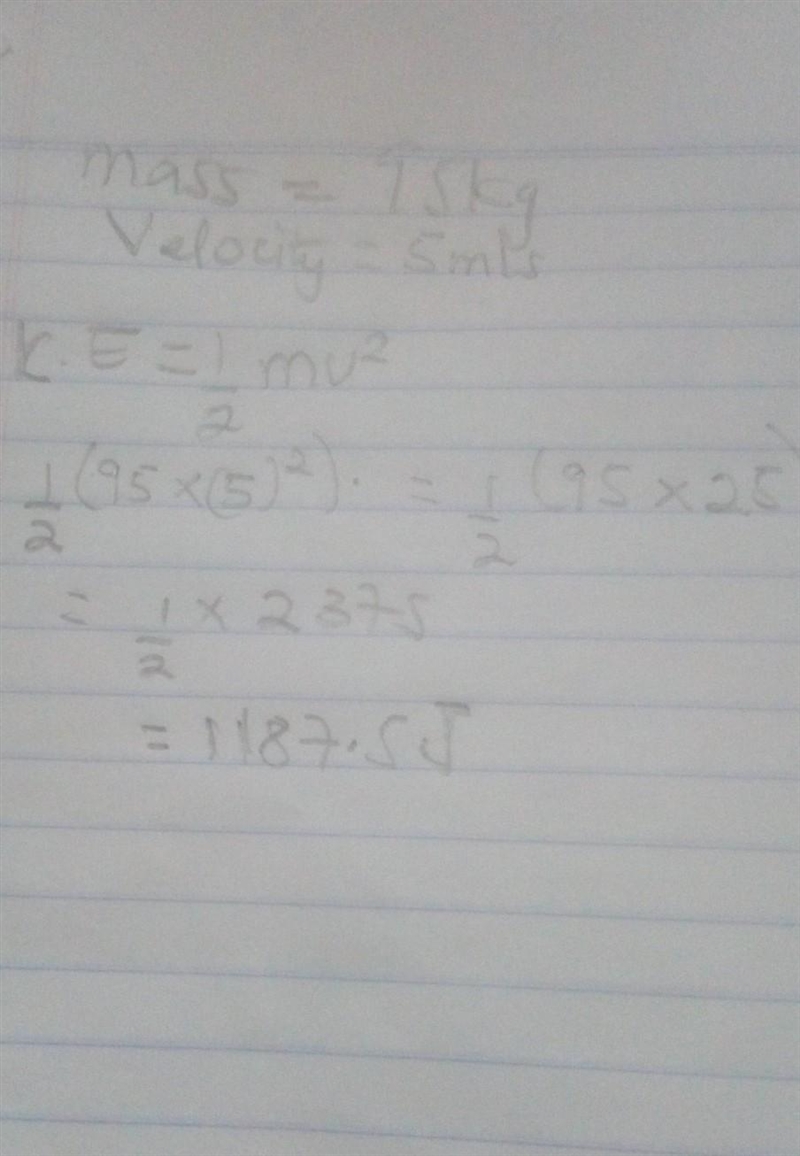 mass = 95kg
Velocity = 5m/s
K.E = 1/2 mv²
1/2 (95 × (5)²). = 1/2 (95 × 25)
= 1/2 × 2375
= 1187.5J